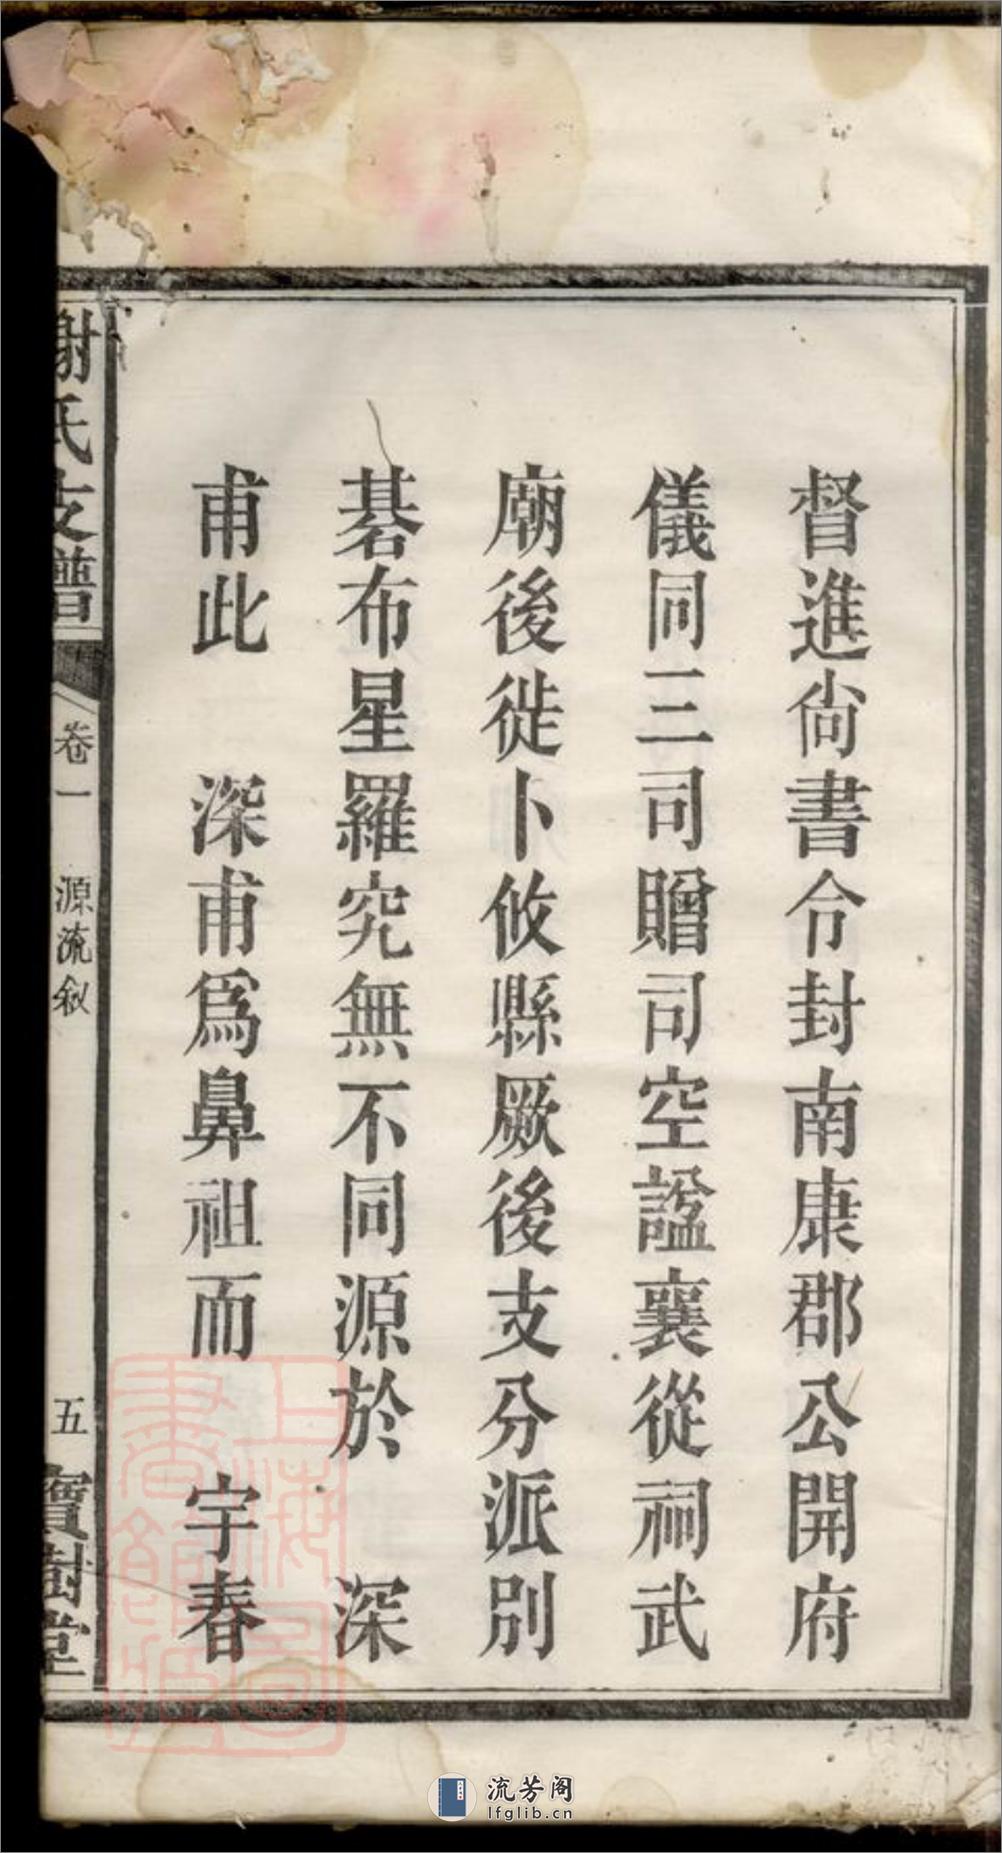 督進尙書令封南康郡公開府
儀同三司贈司空諡襄從祠武
廟後徙卜攸縣厥後支分派別
碁布星羅究無不同源於　深
甫此　深甫爲鼻祖而　宇春
謝氏支譜
卷一　源流敘
五
寶樹堂
上海圖書館藏
流芳阁
lfglib.cn